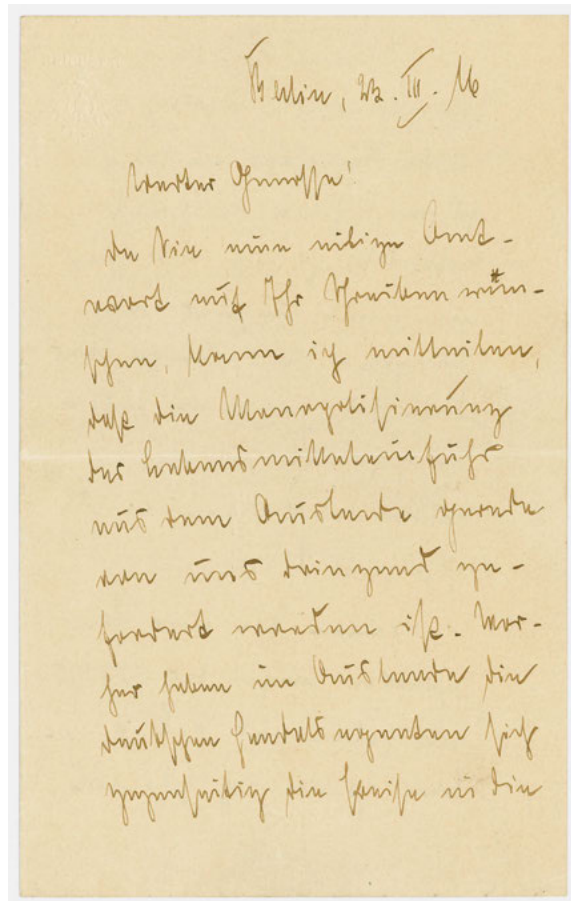 Berlin, 23. III. 16
Werter Genosse!
Da Sie eine eilige Ant-
wort auf Ihr Schreiben wün-
schen, kann ich mitteilen,
daß die Monopolisierung
der Lebensmitteleinfuhr
aus dem Auslande gerade
von uns dringend ge-
fordert worden ist. Vor-
her haben im Auslande die
deutschen Handelsagenten sich
gegenseitig die Preise in die